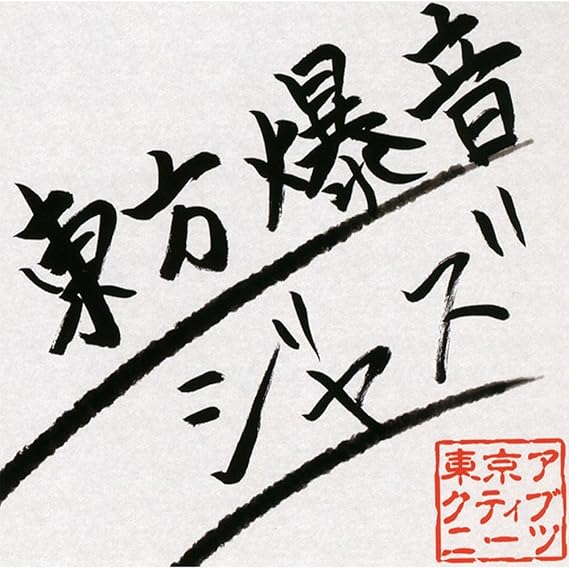 東方爆音
ジャズ
東京ア
クティブ
ニーツ